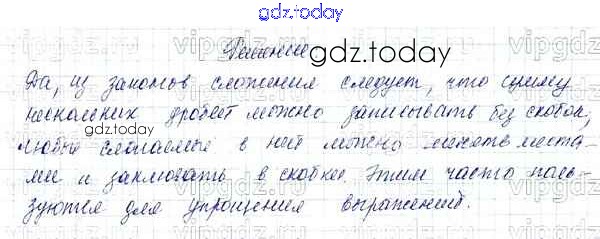 gdz.today
Решение gdz.today
Да, из законов сложения следует, что сумму
нескольких дробей можно записывать без скобок,
gdz.today
любые слагаемые в ней можно менять места-
ми и заключать в скобки. Этим часто поль-
зуются для упрощения выражений.